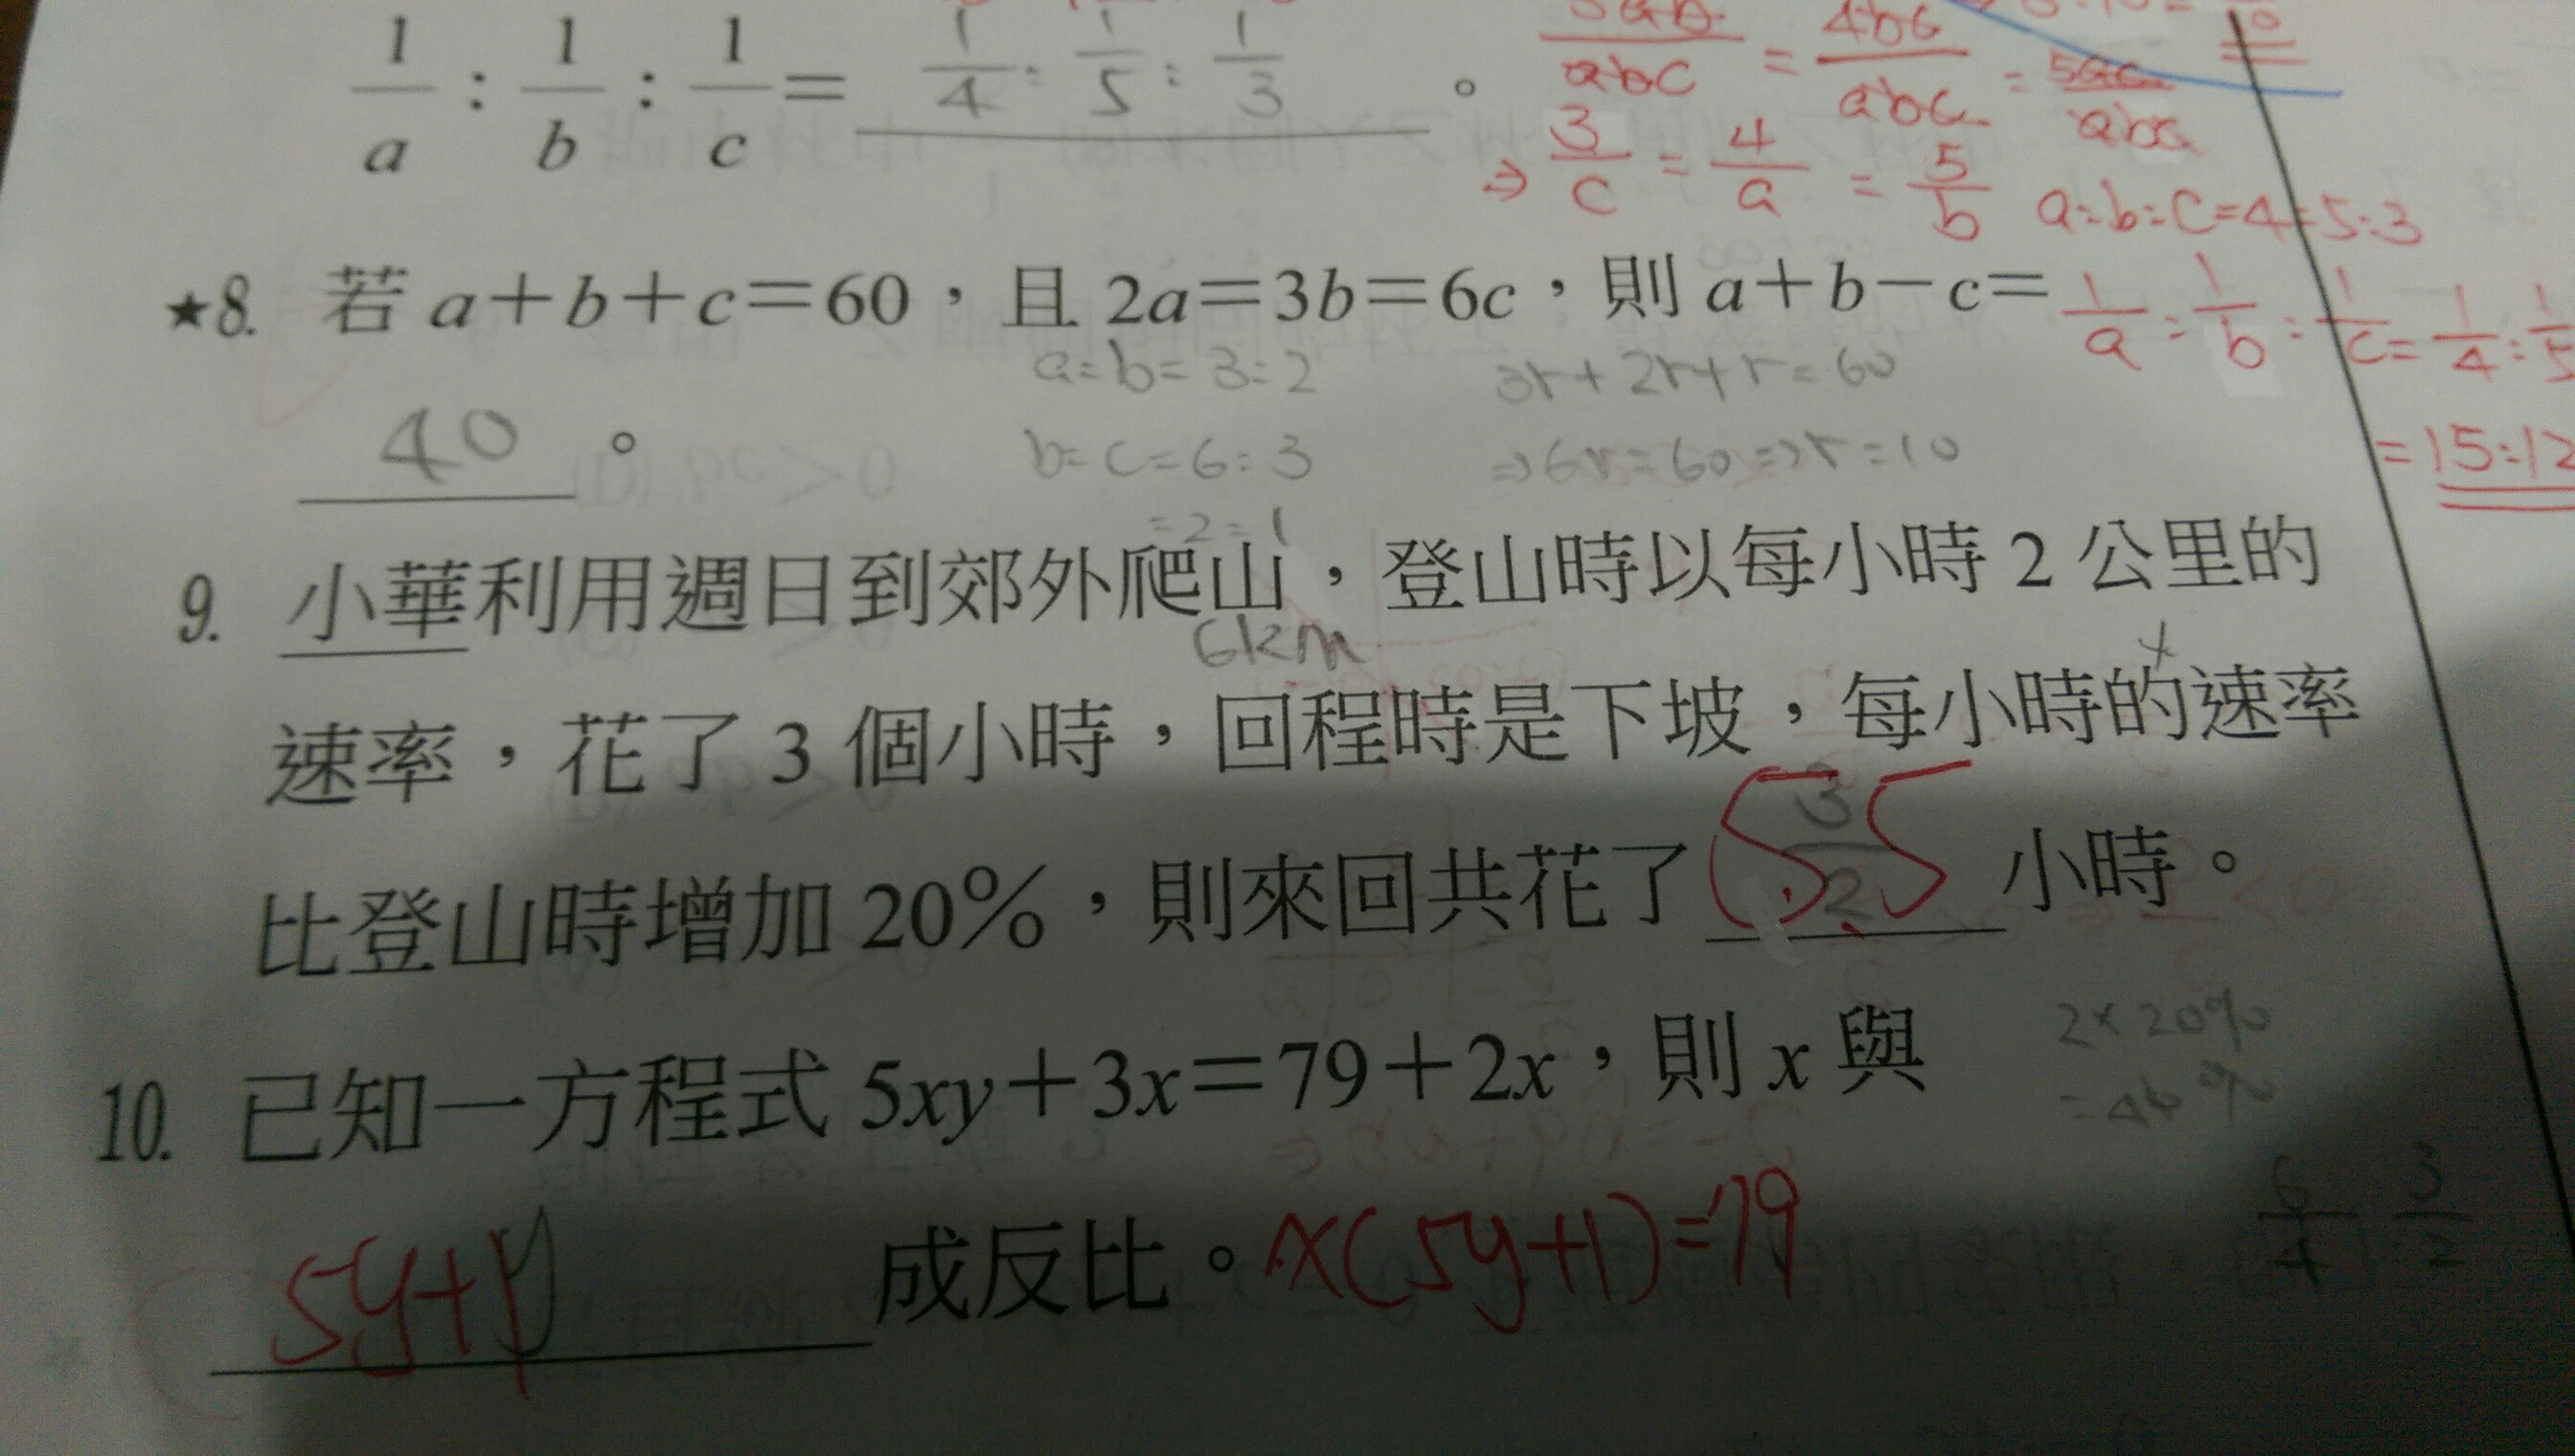 1/a : 1/b : 1/c = 1/4 : 1/5 : 1/3 。
abc = 4bc/abc = 5ac/abc
⇒ 3/c = 4/a = 5/b a:b:c=4:5:3
★8. 若 a+b+c=60,且 2a=3b=6c,則 a+b-c=
1/a : 1/b : 1/c = 1/4 : 1/5
a:b=3:2 3r+2r+r=60
40 。 b:c=6:3 ⇒6r=60⇒r=10
=2:1
=15:12
9. 小華利用週日到郊外爬山,登山時以每小時 2 公里的
6km
速率,花了 3 個小時,回程時是下坡,每小時的速率
比登山時增加 20%,則來回共花了 5.5 小時。
3/2
2×20%
10. 已知一方程式 5xy+3x=79+2x,則 x 與
6/4 3/2
5y+1 成反比。x(5y+1)=79